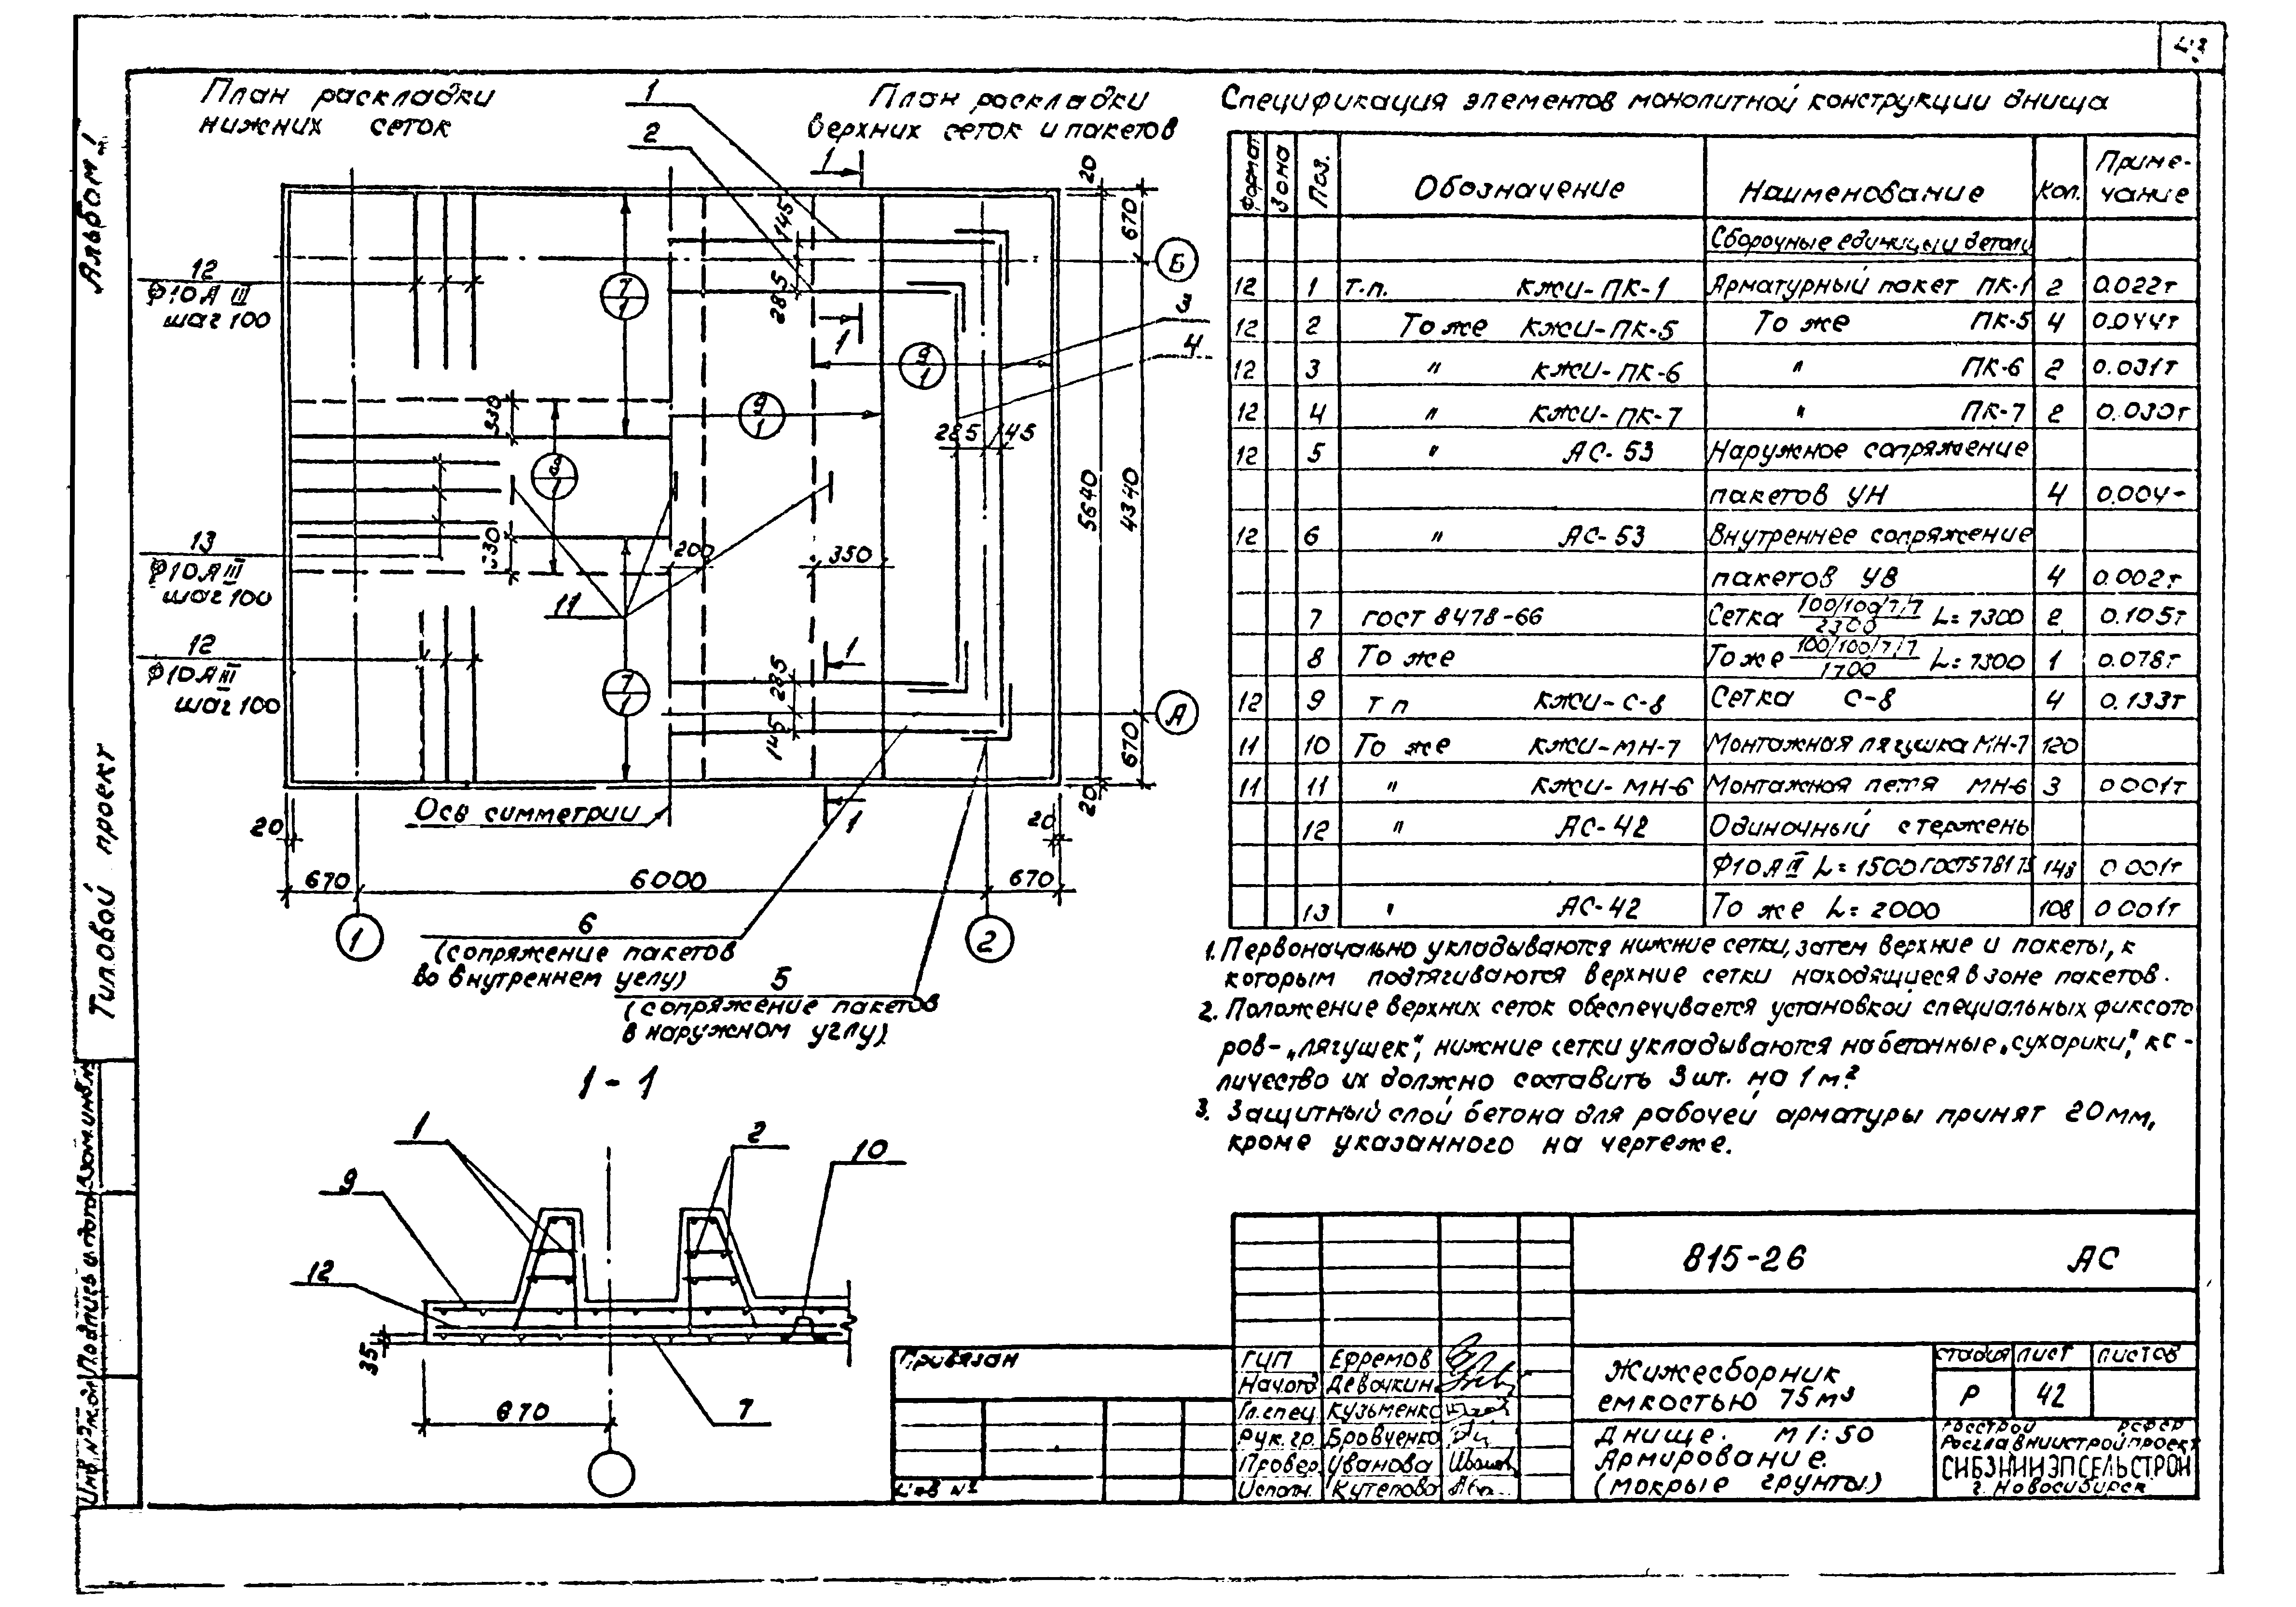 42
Альбом I
Типовой проект
План раскладки
нижних сеток
План раскладки
верхних сеток и пакетов
1
2
1
1
12
Ф10АIII
шаг 100
13
Ф10АIII
шаг 100
12
Ф10АIII
шаг 100
7
1
8
1
7
1
9
1
9
1
145
285
330
330
200
350
285
145
285
145
3
4
11
1
1
20
670
5640
4340
670
20
Б
А
Ось симметрии
20
20
670
6000
670
1
2
6
(сопряжение пакетов
во внутреннем углу)
5
(сопряжение пакетов
в наружном углу)
1-1
1
2
10
9
12
35
670
7
Спецификация элементов монолитной конструкции днища
Формат Зона Поз. Обозначение Наименование Кол. Приме-
чание
Сборочные единицы и детали
12 1 т.п. КЖИ-ПК-1 Арматурный пакет ПК-1 2 0.022т
12 2 То же КЖИ-ПК-5 То же ПК-5 4 0.044т
12 3 " КЖИ-ПК-6 " ПК-6 2 0.031т
12 4 " КЖИ-ПК-7 " ПК-7 2 0.030т
12 5 " АС-53 Наружное сопряжение
пакетов УН 4 0.004т
12 6 " АС-53 Внутреннее сопряжение
пакетов УВ 4 0.002т
7 ГОСТ 8478-66 Сетка 100/100/7/7 / 2300 L=7300 2 0.105т
8 То же То же 100/100/7/7 / 1700 L=7300 1 0.078т
12 9 т п КЖИ-С-8 Сетка С-8 4 0.133т
11 10 То же КЖИ-МН-7 Монтажная лягушка МН-7 120
11 11 " КЖИ-МН-6 Монтажная петля МН-6 3 0001т
12 " АС-42 Одиночный стержень
Ф10АIII L=1500 ГОСТ5781 75 148 0 001т
13 " АС-42 То же L=2000 108 0 001т
1. Первоначально укладываются нижние сетки, затем верхние и пакеты, к
которым подтягиваются верхние сетки находящиеся в зоне пакетов.
2. Положение верхних сеток обеспечивается установкой специальных фиксато
ров-„лягушек", нижние сетки укладываются на бетонные „сухарики", ко-
личество их должно составить 3 шт. на 1 м.²
3. Защитный слой бетона для рабочей арматуры принят 20мм,
кроме указанного на чертеже.
815-26 АС
Привязан
Инв №
ГИП Ефремов
Нач.отд Девочкин
Гл.спец Кузьменко
Рук.гр. Бровченко
Провер. Иванова
Исполн. Кутепова
Жижесборник
емкостью 75м³
стадия лист листов
Р 42
Днище. М 1:50
Армирование.
(мокрые грунты)
Госстрой РСФСР
Росглавниистройпроект
СИБЗНИИЭПСЕЛЬСТРОЙ
г. Новосибирск
Инв.№ подл Подпись и дата Взам.инв.№